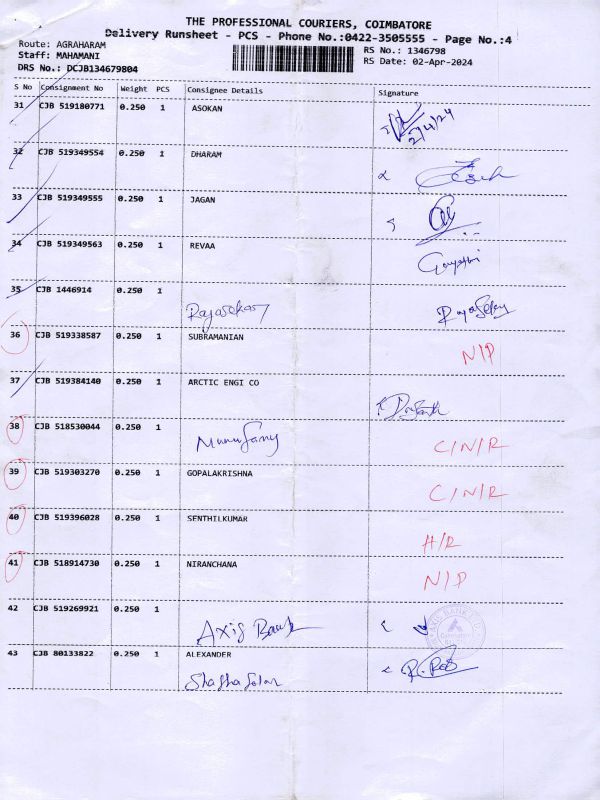 THE PROFESSIONAL COURIERS, COIMBATORE
Delivery Runsheet - PCS - Phone No.:0422-3505555 - Page No.:4
Route: AGRAHARAM RS No.: 1346798
Staff: MAHAMANI RS Date: 02-Apr-2024
DRS No.: DCJB134679804
S No Consignment No Weight PCS Consignee Details Signature
31 CJB 519180771 0.250 1 ASOKAN
2/4/24
32 CJB 519349554 0.250 1 DHARAM
33 CJB 519349555 0.250 1 JAGAN
34 CJB 519349563 0.250 1 REVAA
Gayathri
35 CJB 1446914 0.250 1
Rajasekar
36 CJB 519338587 0.250 1 SUBRAMANIAN
N/P
37 CJB 519384140 0.250 1 ARCTIC ENGI CO
38 CJB 518530044 0.250 1
C/N/R
39 CJB 519303270 0.250 1 GOPALAKRISHNA
C/N/R
40 CJB 519396028 0.250 1 SENTHILKUMAR
H/R
41 CJB 518914730 0.250 1 NIRANCHANA
N/P
42 CJB 519269921 0.250 1
Axis Bank
43 CJB 80133822 0.250 1 ALEXANDER